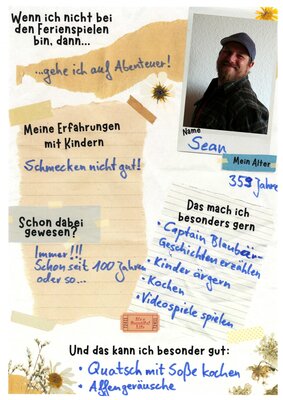 Wenn ich nicht bei
den Ferienspielen
bin, dann...
...gehe ich auf Abenteuer!
Name
Sean
Mein Alter
359 Jahre
Meine Erfahrungen
mit Kindern
Schmecken nicht gut!
Das mach ich
besonders gern
• Captain Blaubär-
Geschichten erzählen
• Kinder ärgern
• Kochen
• Videospiele spielen
Schon dabei
gewesen?
Immer!!!
Schon seit 100 Jahren
oder so...
Und das kann ich besonder gut:
• Quatsch mit Soße kochen
• Affengeräusche